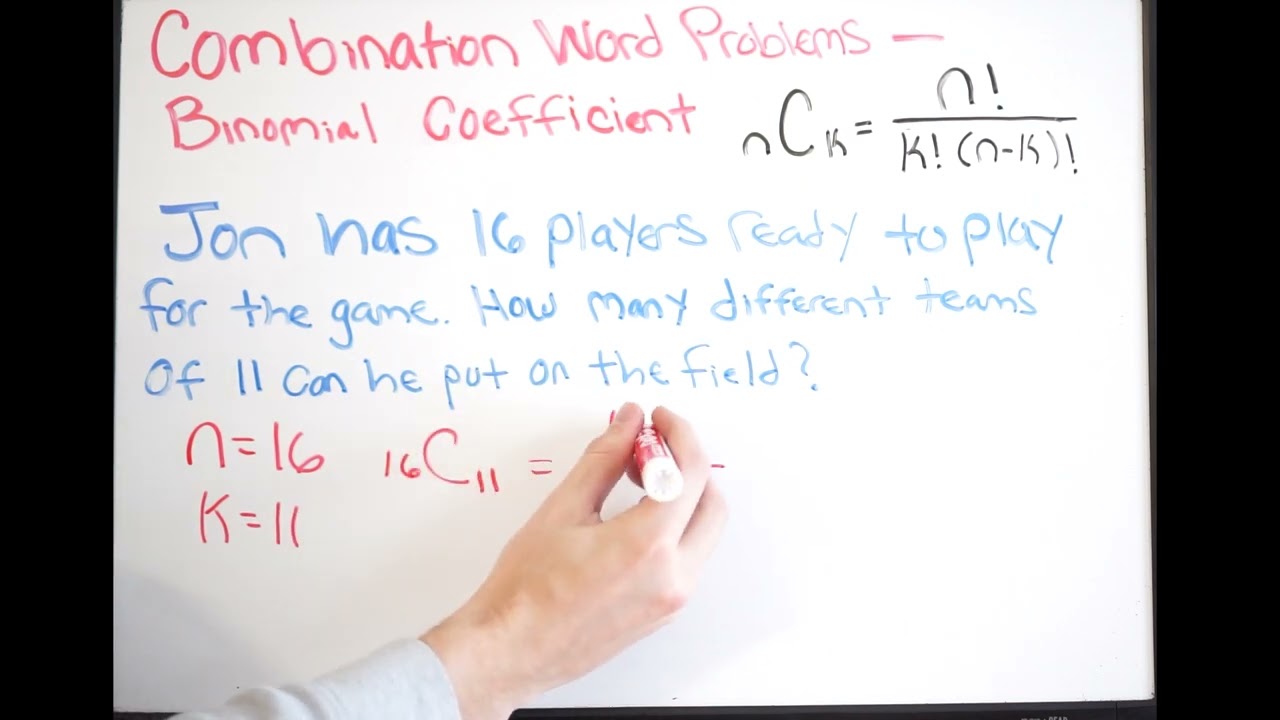 Combination Word Problems —
Binomial Coefficient
nCk = n! / k! (n-k)!
Jon has 16 players ready to play
for the game. How many different teams
of 11 can he put on the field?
n=16 16C11 =
k=11